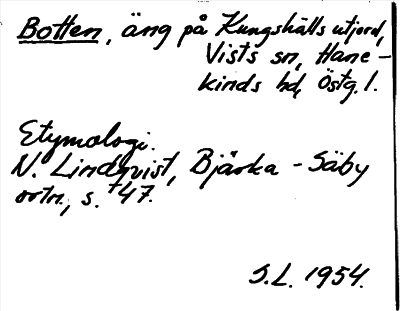 Botten, äng på Kungshälls utjord,
Vists sn, Hane-
kinds hd, Östg. l.
Etymologi.
N. Lindqvist, Bjärka-Säby
ortn., s. 47.
S.L. 1954.